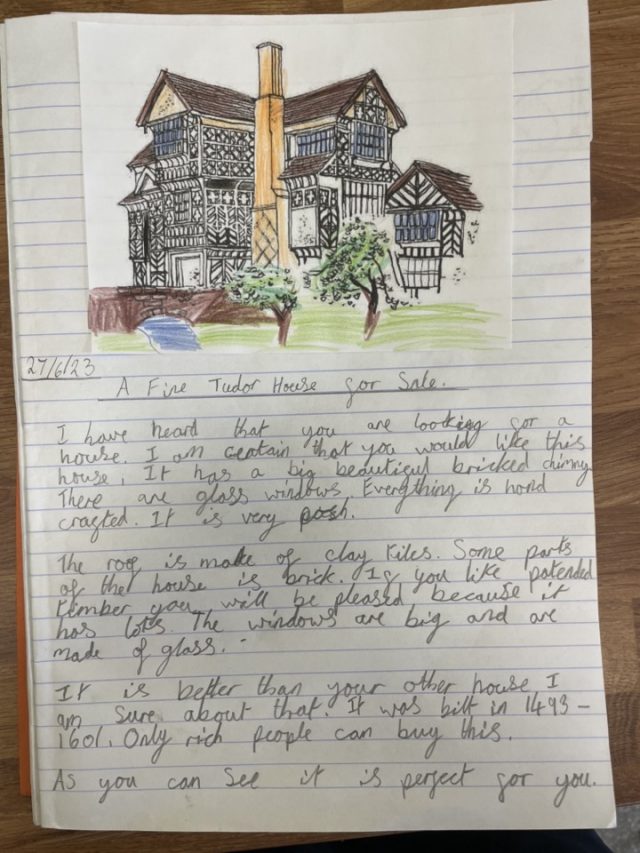 27/6/23
A Fine Tudor House for Sale.
I have heard that you are looking for a
house. I am centain that you would like this
house, It has a big beautiful bricked chimny
There are glass windows. Everything is hand
crafted. It is very posh.
The roof is made of clay tiles. Some parts
of the house is brick. If you like patended
tember you will be pleased because it
has lots. The windows are big and are
made of glass.
It is better than your other house I
am sure about that. It was bilt in 1493 -
1601. Only rich people can buy this.
As you can see it is perfect for you.